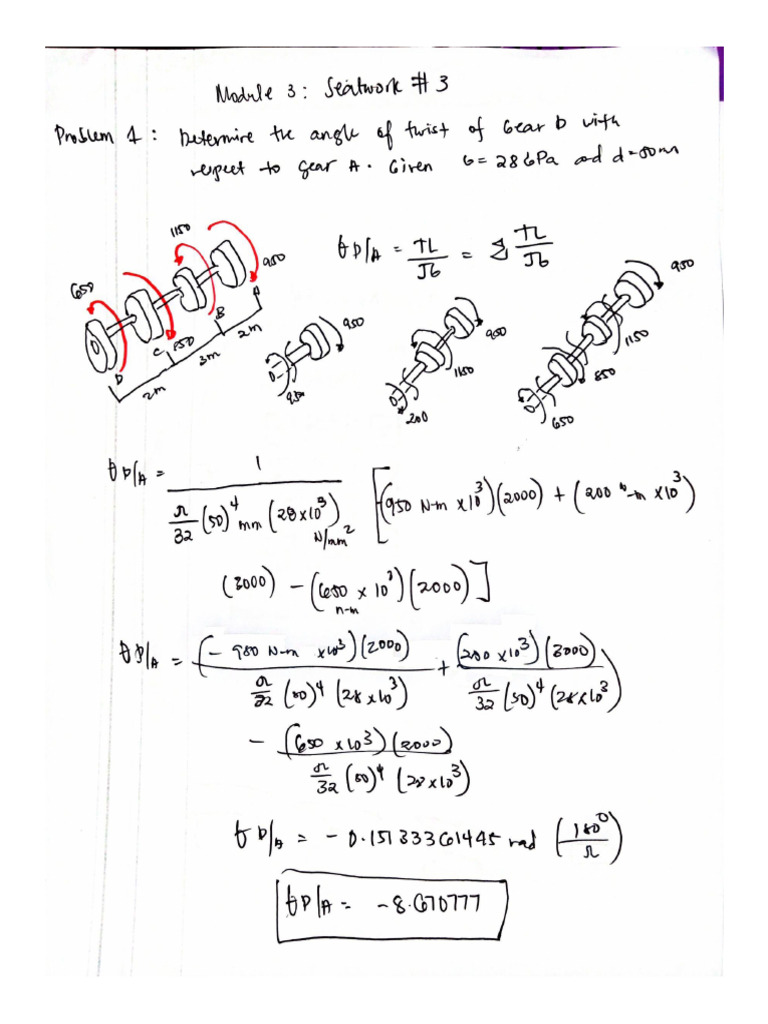 Module 3: Seatwork #3
Problem 1: Determine the angle of twist of Gear D with
respect to Gear A. Given G = 28 GPa and d=50mm
θD/A = TL/JG = Σ TL/JG
1150
950
650
A
B
C
D
850
2m
3m
2m
950
950
950
1150
200
950
1150
850
650
θD/A = 1 / (π/32 (50)^4 mm (28×10^3) N/mm^2) [(950 N-m ×10^3)(2000) + (200 N-m ×10^3)
(3000) - (650 × 10^3)(2000)]
n-m
θD/A = (-950 N-m ×10^3)(2000) / (π/32 (50)^4 (28×10^3)) + (200×10^3)(3000) / (π/32 (50)^4 (28×10^3))
- (650 ×10^3)(2000) / (π/32 (50)^4 (28×10^3))
θD/A = -0.15133361445 rad (180°/π)
θD/A = -8.670777